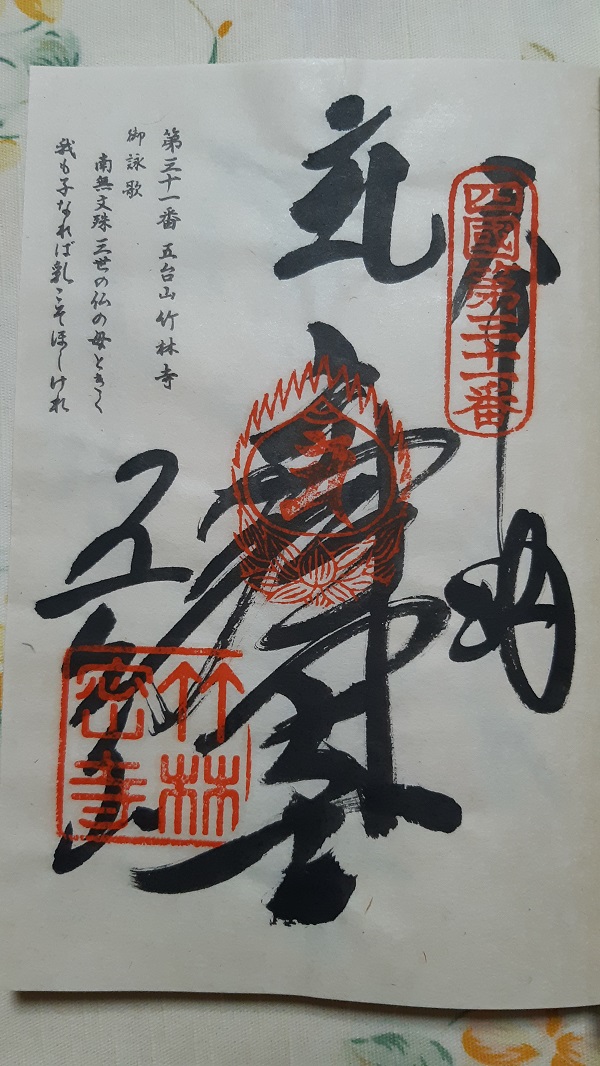 四國第三十一番
奉納
五台山
竹林密寺
第三十一番 五台山 竹林寺
御詠歌
南無文殊三世の仏の母ときく
我も子なれば乳こそほしけれ